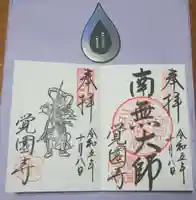 奉拝
南無大師
覚園寺
令和五年
十月八日
奉拝
覚園寺
令和五年
十月八日